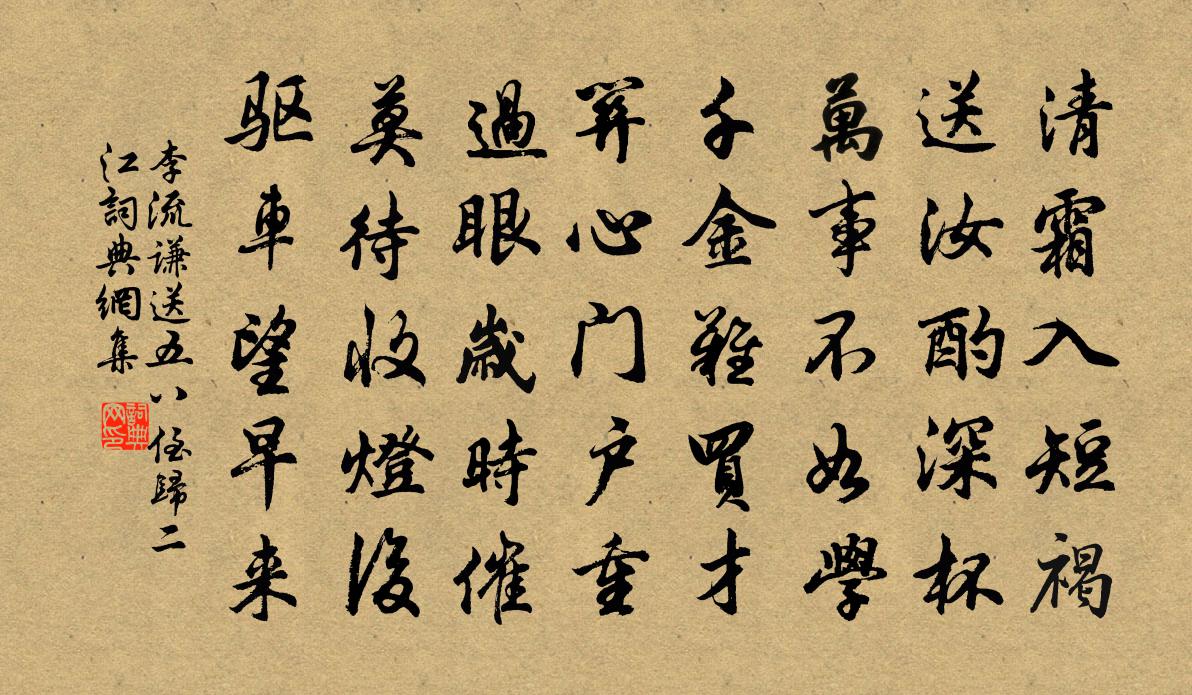 清霜入短褐
送汝酌深杯
萬事不如學
千金難買才
関心门户重
過眼歲時催
莫待收燈後
驱車望早来
李流谦送五八侄歸二
江詞典網集
詞典
网印